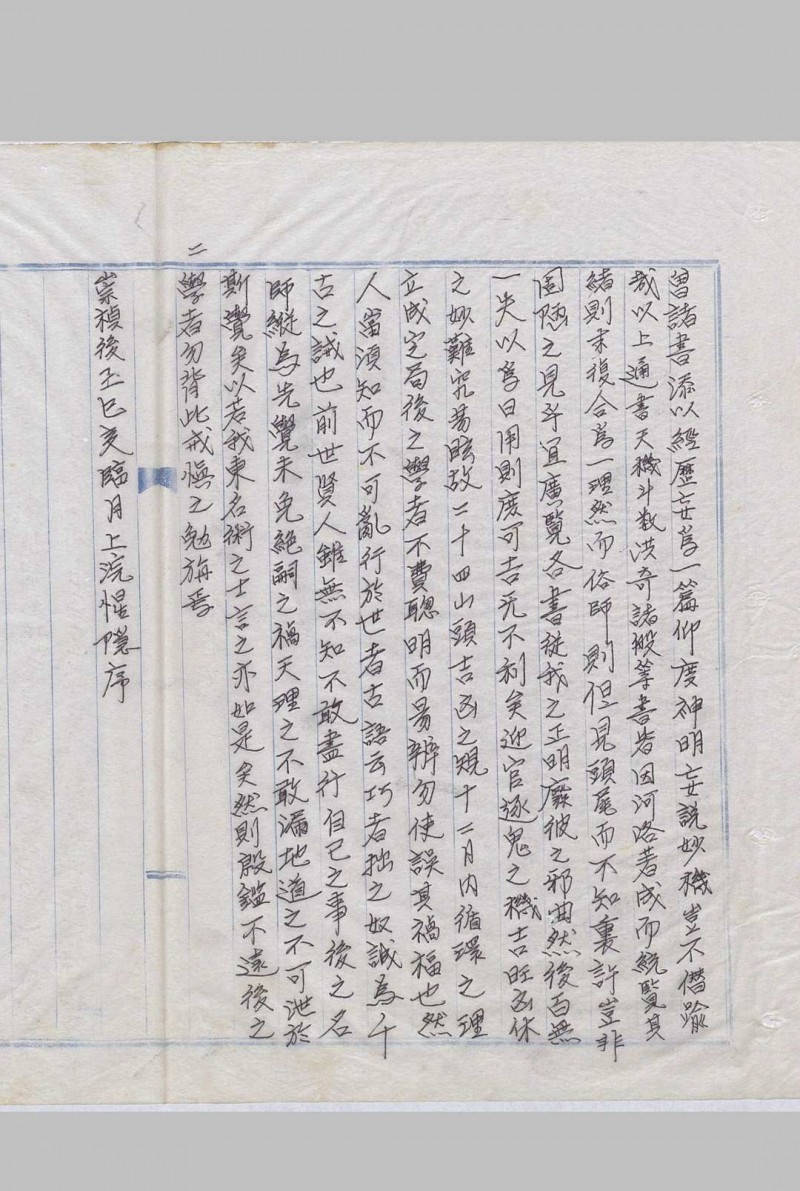 曾諸書添以經歷妄爲一篇仰度神明妄説妙機豈不僭踰
哉以上通書天機斗数洪奇諸般等書皆因河洛著成而統覧其
緒則末復合爲一理然而俗師則但見頭尾而不知裏許豈非
固陋之見乎宜廣覧各書從我之正明廢彼之邪曲然後百無
一失以爲日用則度可吉无不利矣迎官逐鬼之機吉旺凶休
之妙難究易眩故二十四山頭吉凶之規十二月内循環之理
立成定局後之學者不費聰明而易辨勿使誤其禍福也然
人當須知而不可亂行於世者古語云巧者拙之奴誠為千
古之誡也前世賢人雖無不知不敢盡行自己之事後之名
師縱爲先覺未免絶嗣之禍天理之不敢漏地道之不可泄於
斯覺矣以若我東名術之士言之亦如是矣然則殷鑑不遠後之
學者勿背此戒愼之勉旃焉
二
崇禎後五巳亥臨月上浣惺隱序